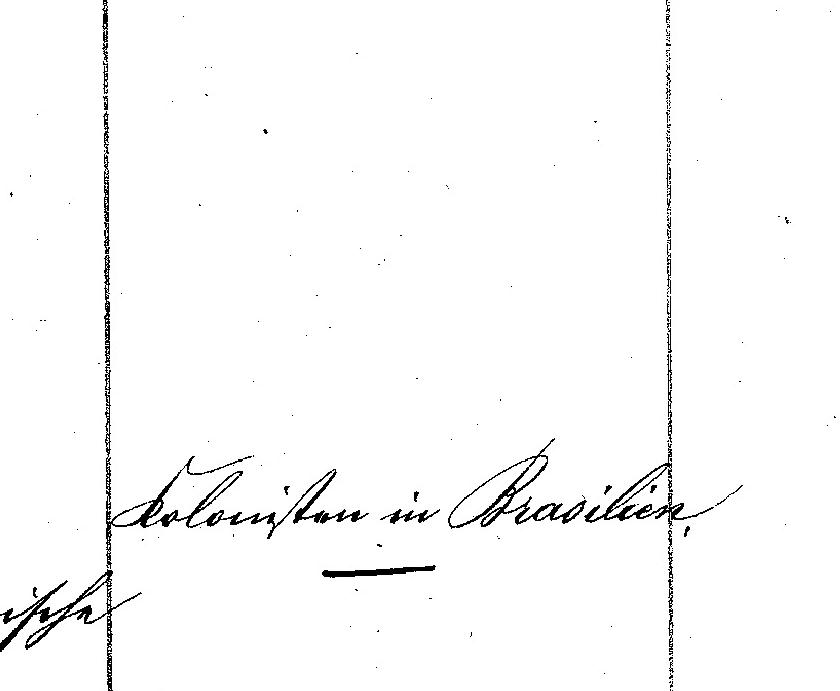 Kolonisten in Brasilien.
ische